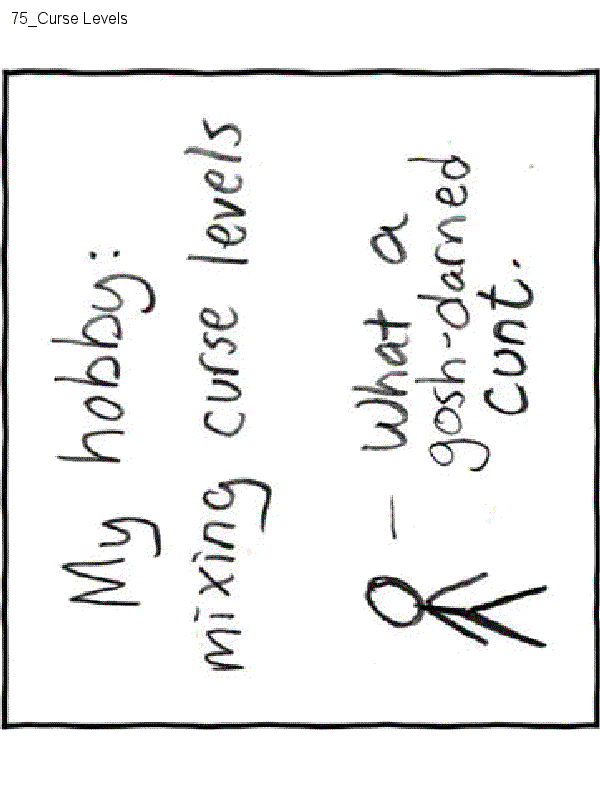 75_Curse Levels
My hobby:
mixing curse levels
What a
gosh-darned
cunt.